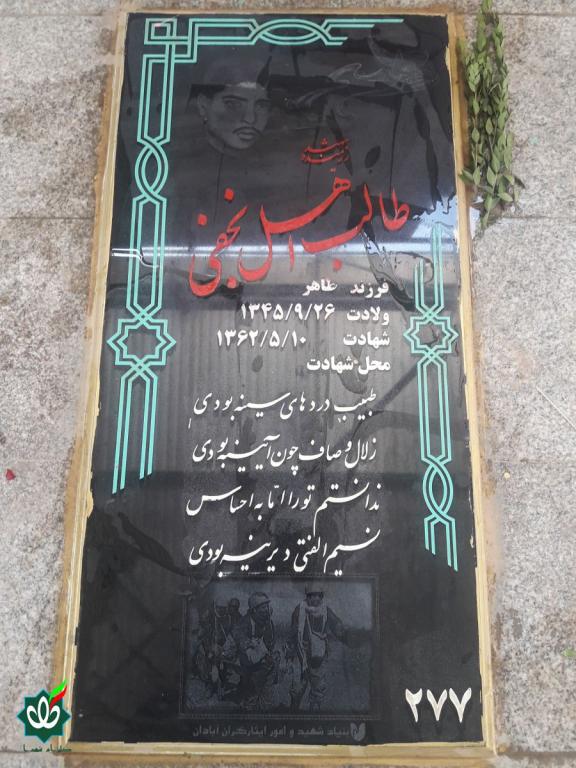 رزمنده شهید
طالب اهل نجفی
فرزند طاهر
ولادت ۱۳۴۵/۹/۲۶
شهادت ۱۳۶۲/۵/۱۰
محل شهادت
طبیب دردهای سینه بودی
زلال و صاف چون آیینه بودی
ندانستم تو را امّا به احساس
نسیم الفتی دیرینه بودی
۲۷۷
بنیاد شهید و امور ایثارگران آبادان